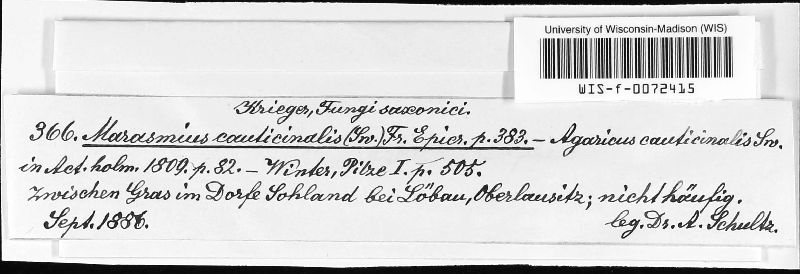 University of Wisconsin-Madison (WIS)
WIS-f-0072415
Krieger, Fungi saxonici.
366. Marasmius cauticinalis (Sw.) Fr. Epicr. p. 383. – Agaricus cauticinalis Sw.
in Act. holm. 1809. p. 82. – Winter, Pilze I. p. 505.
Zwischen Gras im Dorfe Sohland bei Löbau, Oberlausitz; nicht häufig.
Sept. 1886. leg. Dr. A. Schultz.